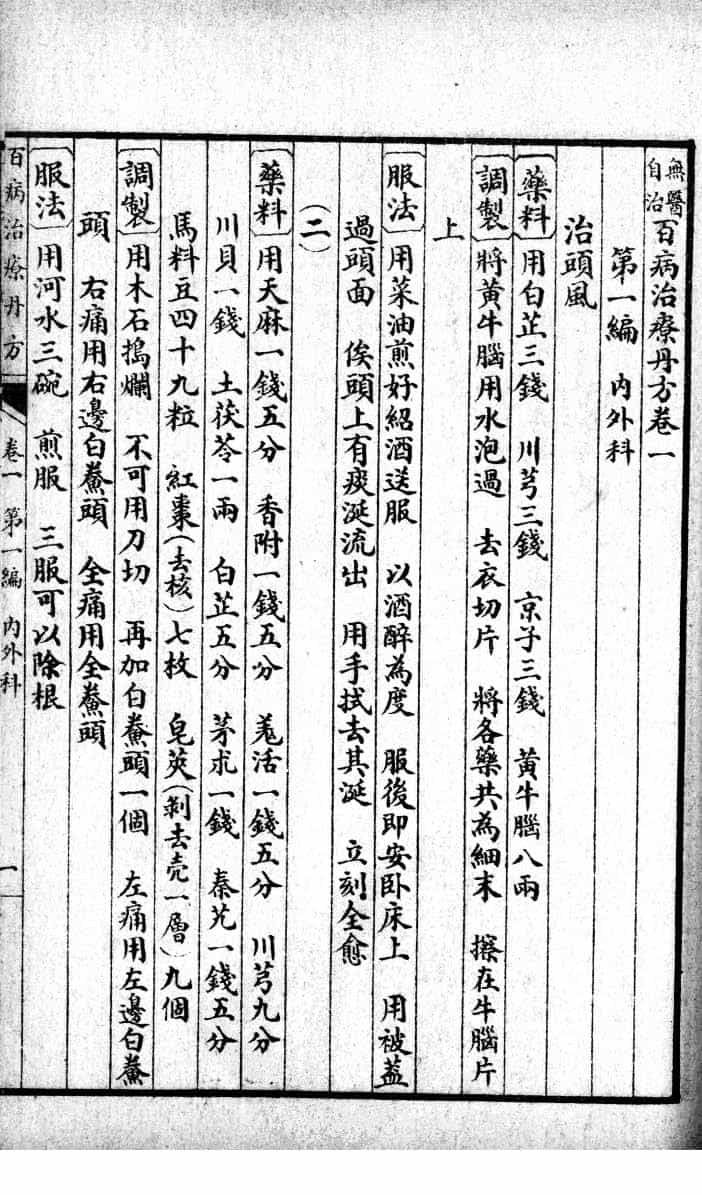 無醫自治百病治療丹方卷一
第一編　內外科
治頭風
〔藥料〕用白芷三錢　川芎三錢　京子三錢　黃牛腦八兩
〔調製〕將黃牛腦用水泡過　去衣切片　將各藥共為細末　擦在牛腦片
上
〔服法〕用菜油煎好紹酒送服　以酒醉為度　服後即安卧床上　用被蓋
過頭面　俟頭上有痰涎流出　用手拭去其涎　立刻全愈
（二）
〔藥料〕用天麻一錢五分　香附一錢五分　羗活一錢五分　川芎九分
川貝一錢　土茯苓一兩　白芷五分　茅朮一錢　秦艽一錢五分
馬料豆四十九粒　紅棗（去核）七枚　皂莢（剝去壳一層）九個
〔調製〕用木石搗爛　不可用刀切　再加白鯗頭一個　左痛用左邊白鯗
頭　右痛用右邊白鯗頭　全痛用全鯗頭
〔服法〕用河水三碗　煎服　三服可以除根
百病治療丹方　卷一　第一編　內外科　一